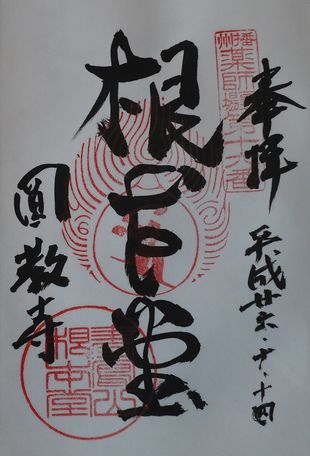 奉拝
平成廿六・十・十四
播州
薬師霊場第十六番
根本堂
圓教寺
書寫山
根本堂